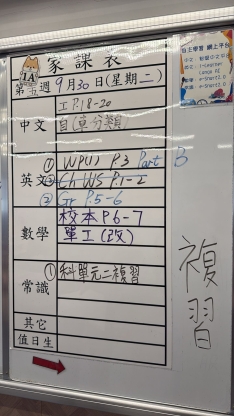 家課表
1A
第五週 9月30日(星期二)
中文
工 P.18-20
自(車分類)
英文
① WPU1 P.3 Part B
② Ch WS P.1-2
③ Gr P.5-6
數學
校本 P.6-7
單工(改)
常識
① 科單元二複習
其它
值日生
複習
自主學習 網上平台